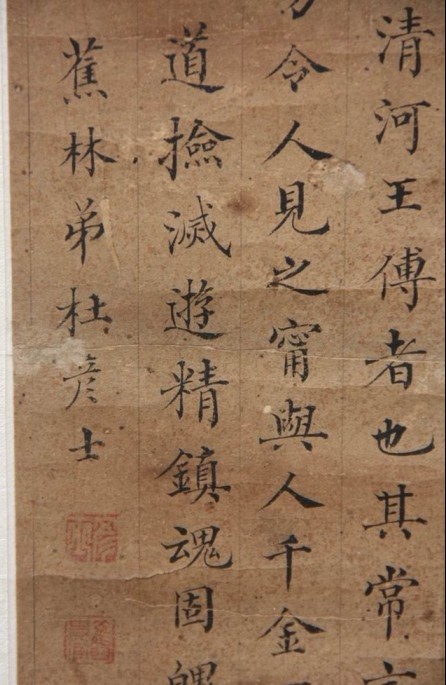 清河王傅者也其常
令人見之甯與人千金
道撿滅遊精鎮魂固
蕉林弟杜彥士